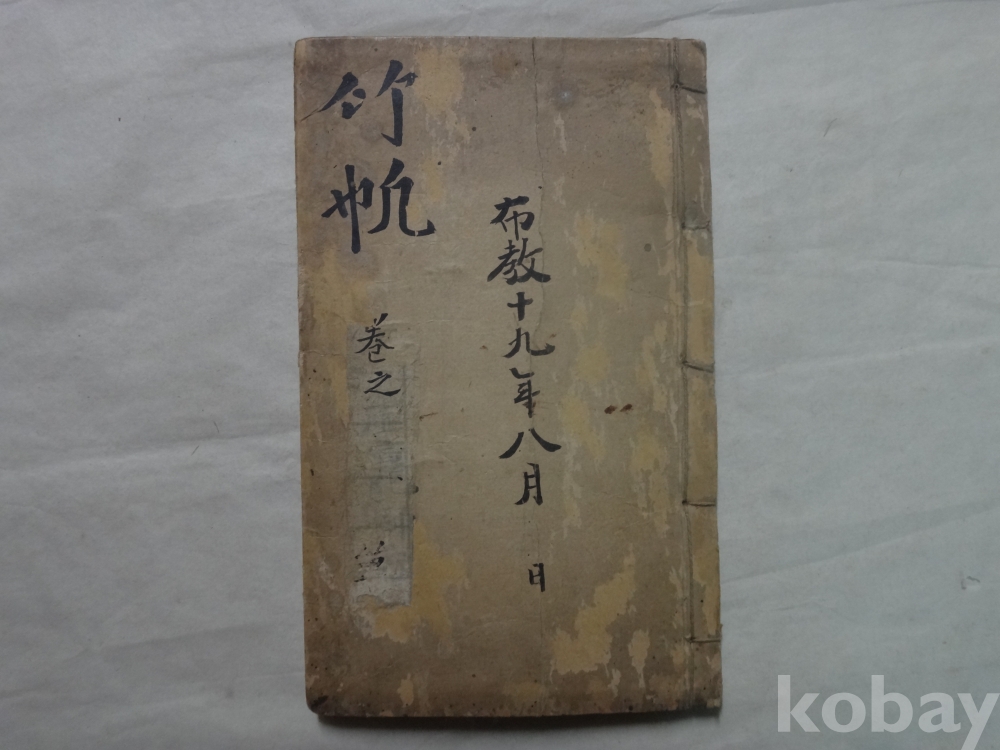 布教十九年八月 日
竹帆
卷之
kobay